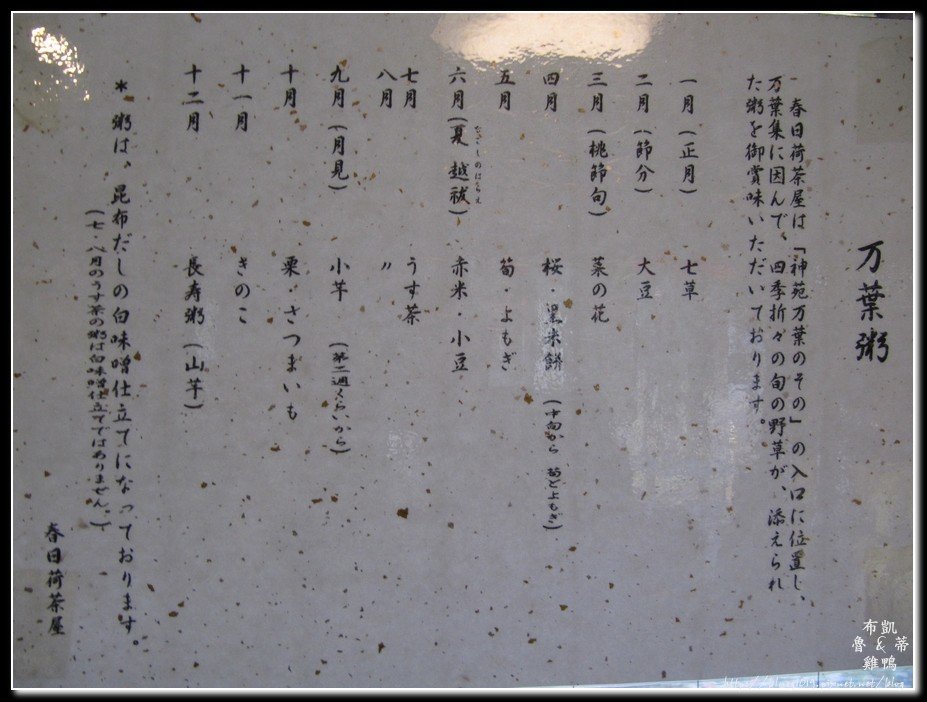 万葉粥
春日荷茶屋は「神苑万葉のその」の入口に位置し、
万葉集に因んで、四季折々の旬の野草が、添えられ
た粥を御賞味いただいております。
一月(正月) 七草
二月(節分) 大豆
三月(桃節句) 菜の花
四月 桜・黒米餅 (中旬から 筍とよもぎ)
五月 筍・よもぎ
六月(夏越祓) 赤米・小豆
なごしのはらえ
七月 うす茶
八月 〃
九月(月見) 小芋 (第二週くらいから)
十月 栗・さつまいも
十一月 きのこ
十二月 長寿粥(山芋)
*粥は、昆布だしの白味噌仕立てになっております。
(七・八月のうす茶の粥は白味噌仕立てではありません。)
春日荷茶屋
布凱
魯&蒂
雞鴨